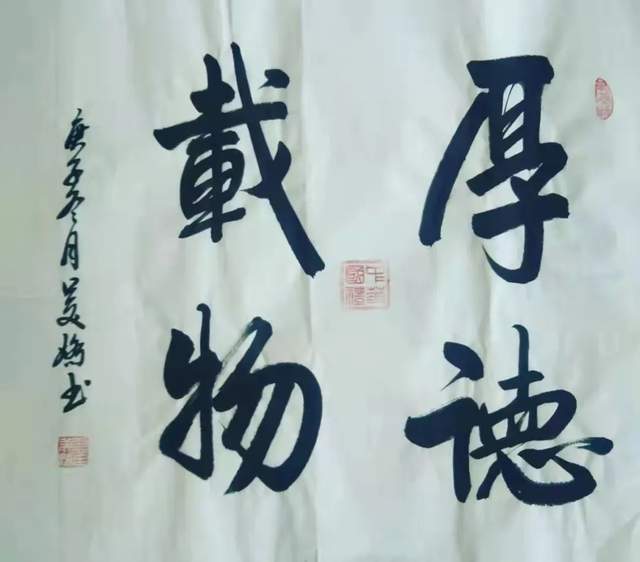 厚德
載物
庚子冬月吴娇书